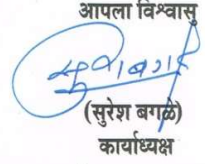 आपला विश्वासु
(सुरेश बगळे)
कार्याध्यक्ष